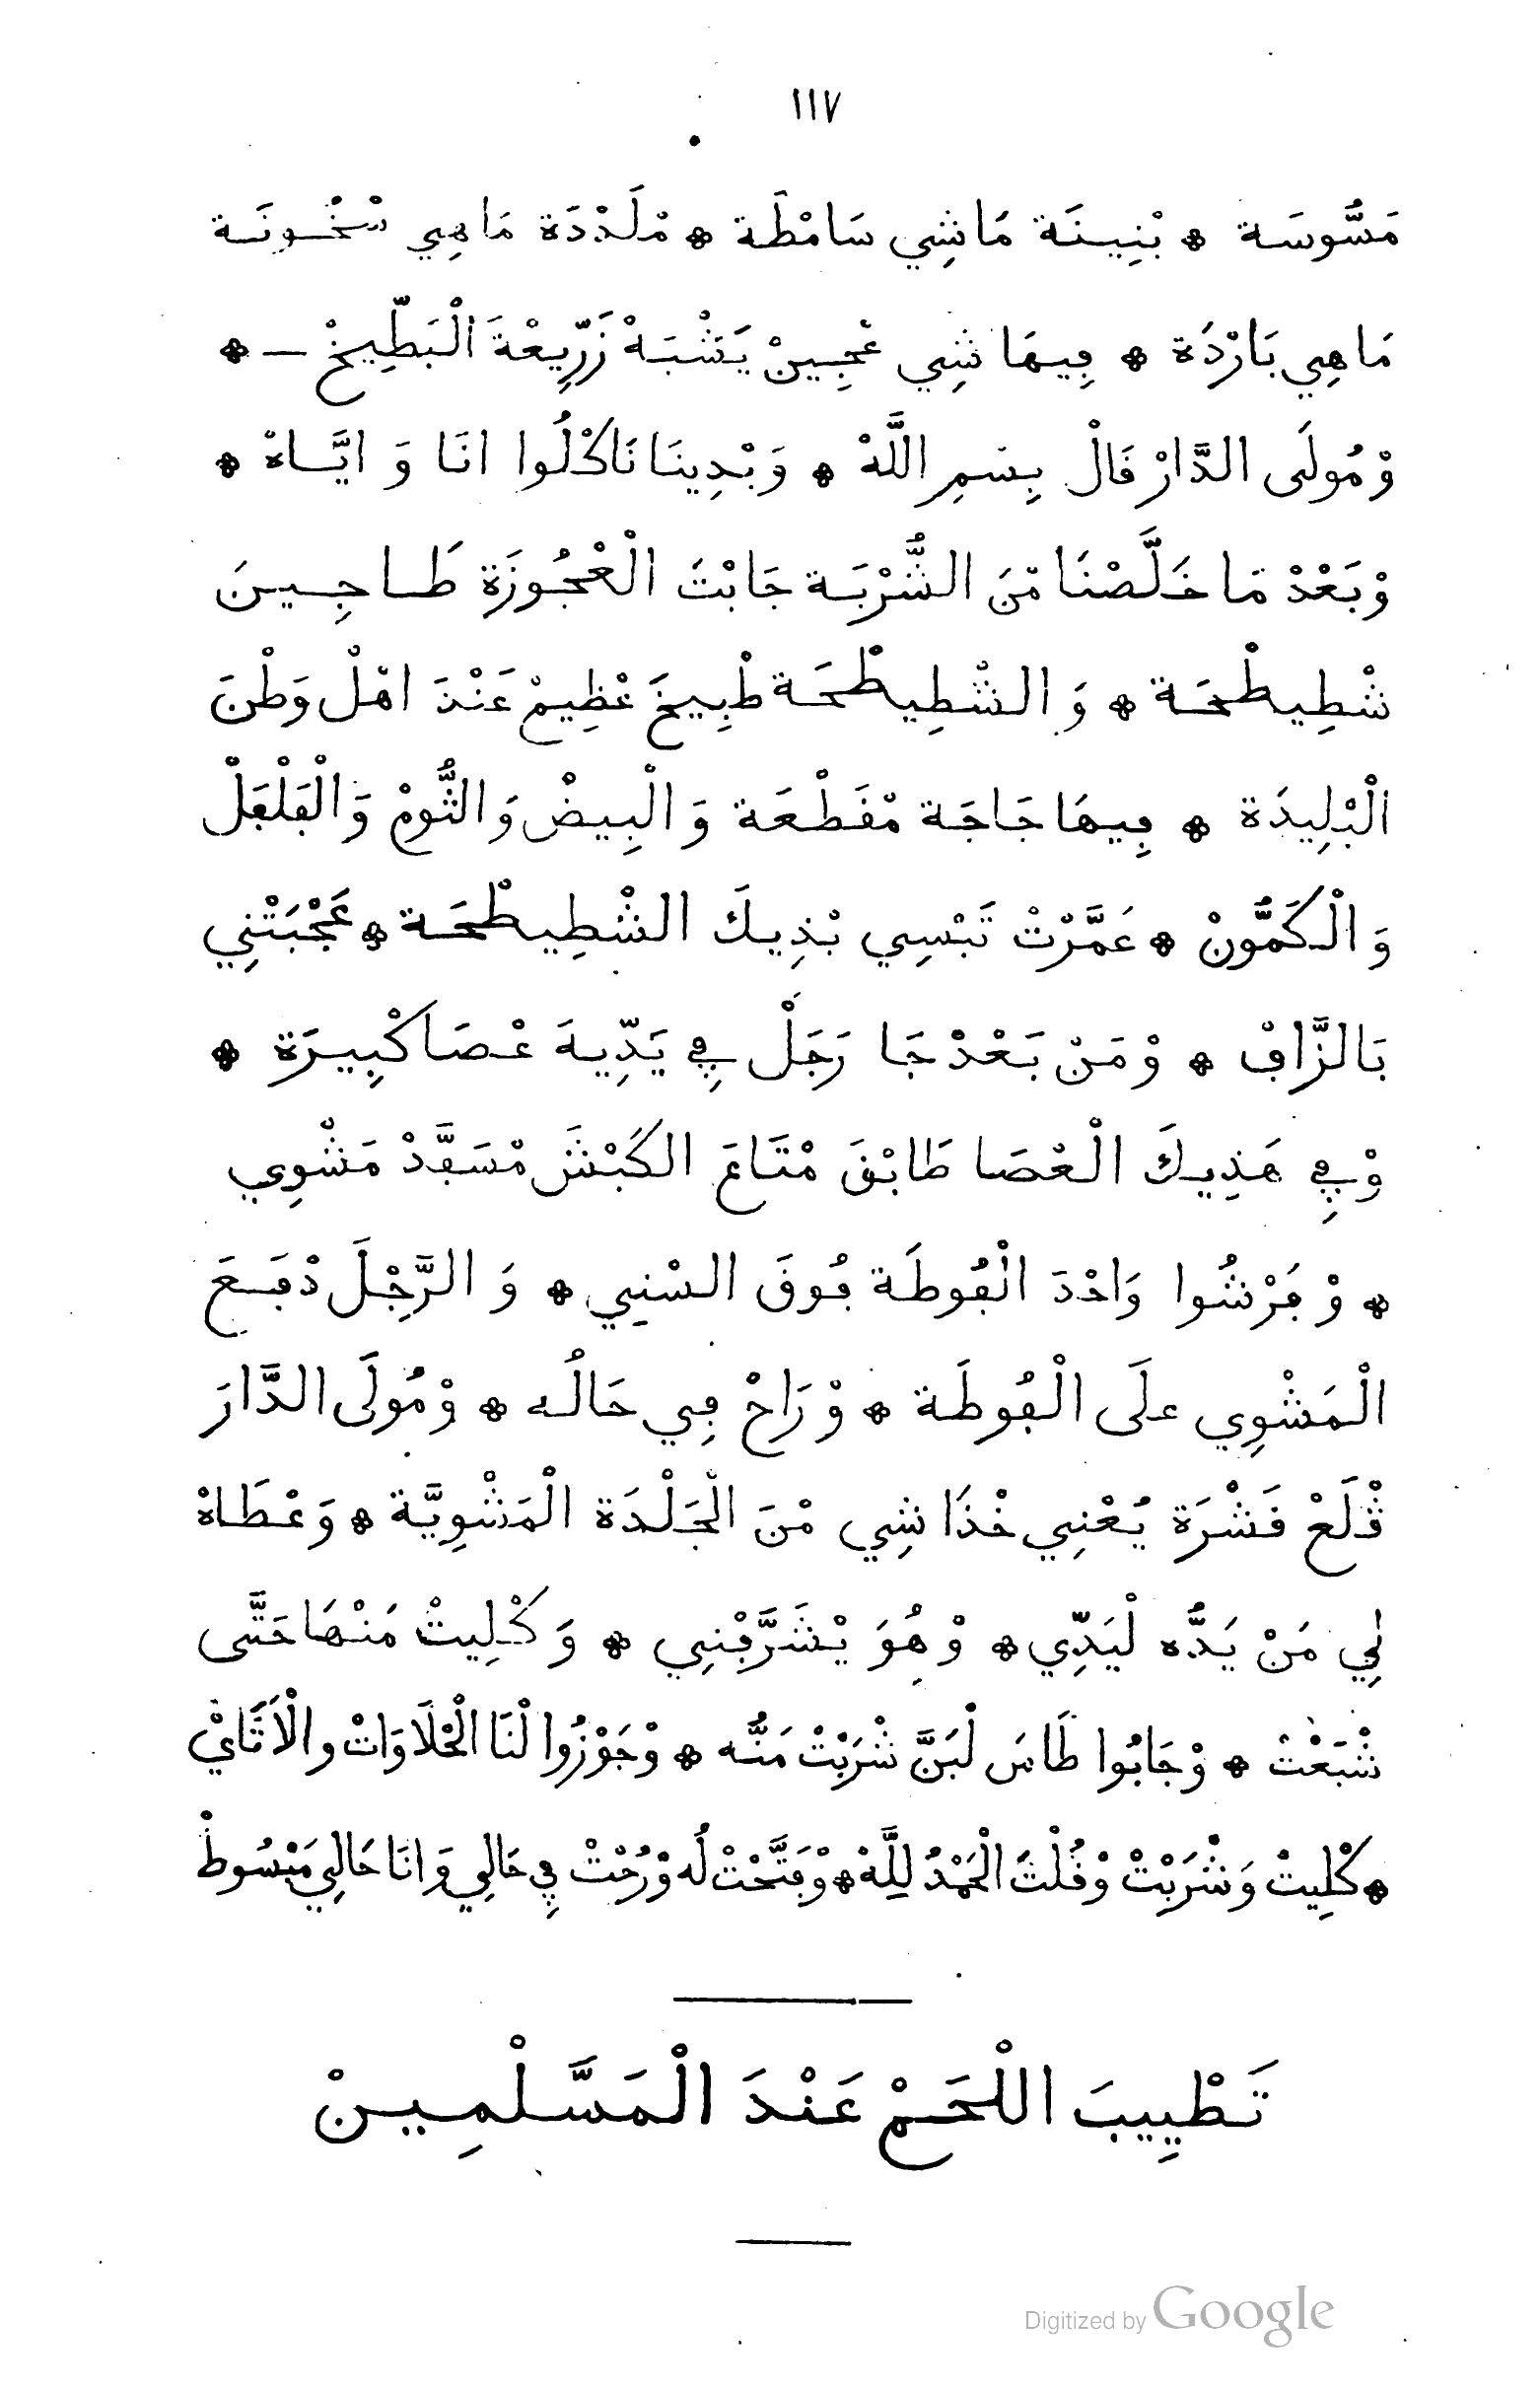 ١١٧
مَسُّوسَة * بْنِينَة مَاشِي سَامْطَة * مْلَدْدَة مَاهِي سْخُونَة
مَاهِي بَارْدَة * فِيهَا شِي عْجِينْ يَشْبَهْ زَرِّيعْةَ الْبَطِّيخْ — *
وْمُولَى الدَّارْ قَالْ بِسْمِ اللَّهْ * وَبْدِينَا نَاكْلُوا انَا وَ ايَّاهْ *
وْبَعْدْ مَا خَلَّصْنَا مْنَ الشُّرْبَة جَابْتَ الْعْجُوزَة طَاجِينَ
شْطِيطْحَة * وَ الشْطِيطْحَة طْبِيخَ عْظِيمْ عَنْدَ اهْلْ وَطْنَ
الْبْلِيدَة * فِيهَا جَاجَة مْقَطْعَة وَ الْبِيضْ وَ الثُّومْ وَ الْفَلْفَلْ
وَ الْكَمُّونْ * عَمَّرْتْ نَفْسِي بْذِيكَ الشْطِيطْحَة * عَجْبَتْنِي
بَالزَّافْ * وْمَنْ بَعْدْ جَا رَجَلْ فِي يَدِّيهَ عْصَا كْبِيرَة *
وْفِي هَذِيكَ الْعْصَا طَابْقَ مْتَاعَ الكَبْشَ مْسَفَّدْ مَشْوِي
* وْ فَرْشُوا وَاحْدَ الْفُوطَة فُوقَ السْنِي * وَ الرَّجْلَ دْفَعَ
الْمَشْوِي علَى الْفُوطَة * وْ رَاحْ فِي حَالُه * وْمُولَى الدَّارَ
قْلَعْ قَشْرَة يَعْنِي خْذَا شِي مْنَ الْجَلْدَة الْمَشْوِيَّة * وَعْطَاهْ
لِي مَنْ يَدُّه لْيَدِّي * وْ هُوَ يْشَرَّفْنِي * وَ كْلِيتْ مَنْهَا حَتَّى
شْبَعْتْ * وْجَابُوا طَاسَ لْبَنَّ شْرَبْتْ مَنُّه * وْجَوْزُوا لْنَا الْحْلَاوَاتْ والْاَتَايْ
* كْلِيتْ وَشْرَبْتْ وْقُلْتَ الْحَمْدُ لِلَّهْ * وْفَتَّحْتْ لُه وْرُحْتْ فِي حَالِي وَانَا حَالِي مَبْسُوطْ
تَطْيِيبَ اللْحَمْ عَنْدَ الْمَسَّلْمِينْ
Digitized by Google